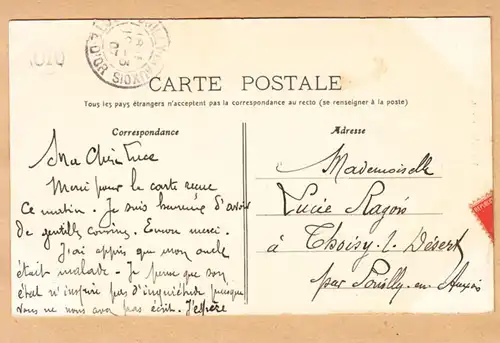 CARTE POSTALE
Tous les pays étrangers n'acceptent pas la correspondance au recto (se renseigner à la poste)
Correspondance
Adresse
Ma Chère Luce
Merci pour la carte reçue
ce matin. Je suis heureuse d'avoir
de gentilles cousines. Encore merci.
J'ai appris que mon oncle
était malade - Je pense que son
état n'inspire pas d'inquiétude puisque
vous ne nous avez pas écrit. J'espère
Mademoiselle
Lucie Ragois
à Thoisy-l-Désert
par Pouilly-en-Auxois